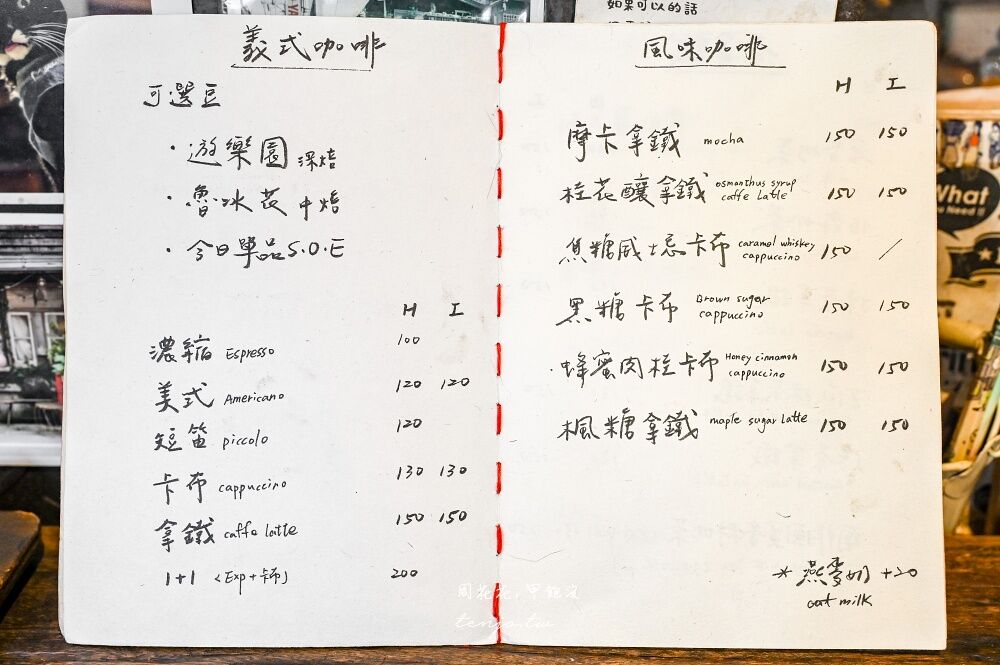 如果可以的話
義式咖啡
可選豆
・遊樂園 深焙
・魯冰花 中焙
・今日單品S.O.E
H I
濃縮 Espresso 100
美式 Americano 120 120
短笛 piccolo 120
卡布 cappuccino 130 130
拿鐵 caffe latte 150 150
1+1 (Exp+卡布) 200
風味咖啡
H I
摩卡拿鐵 mocha 150 150
桂花釀拿鐵 osmanthus syrup caffe latte 150 150
焦糖威士忌卡布 caramel whiskey cappuccino 150 /
黑糖卡布 Brown sugar cappuccino 150 150
蜂蜜肉桂卡布 Honey cinnamon cappuccino 150 150
楓糖拿鐵 maple sugar latte 150 150
*燕麥奶 +20
oat milk
周花花,甲飽沒
tenjo.tw
What
Need it